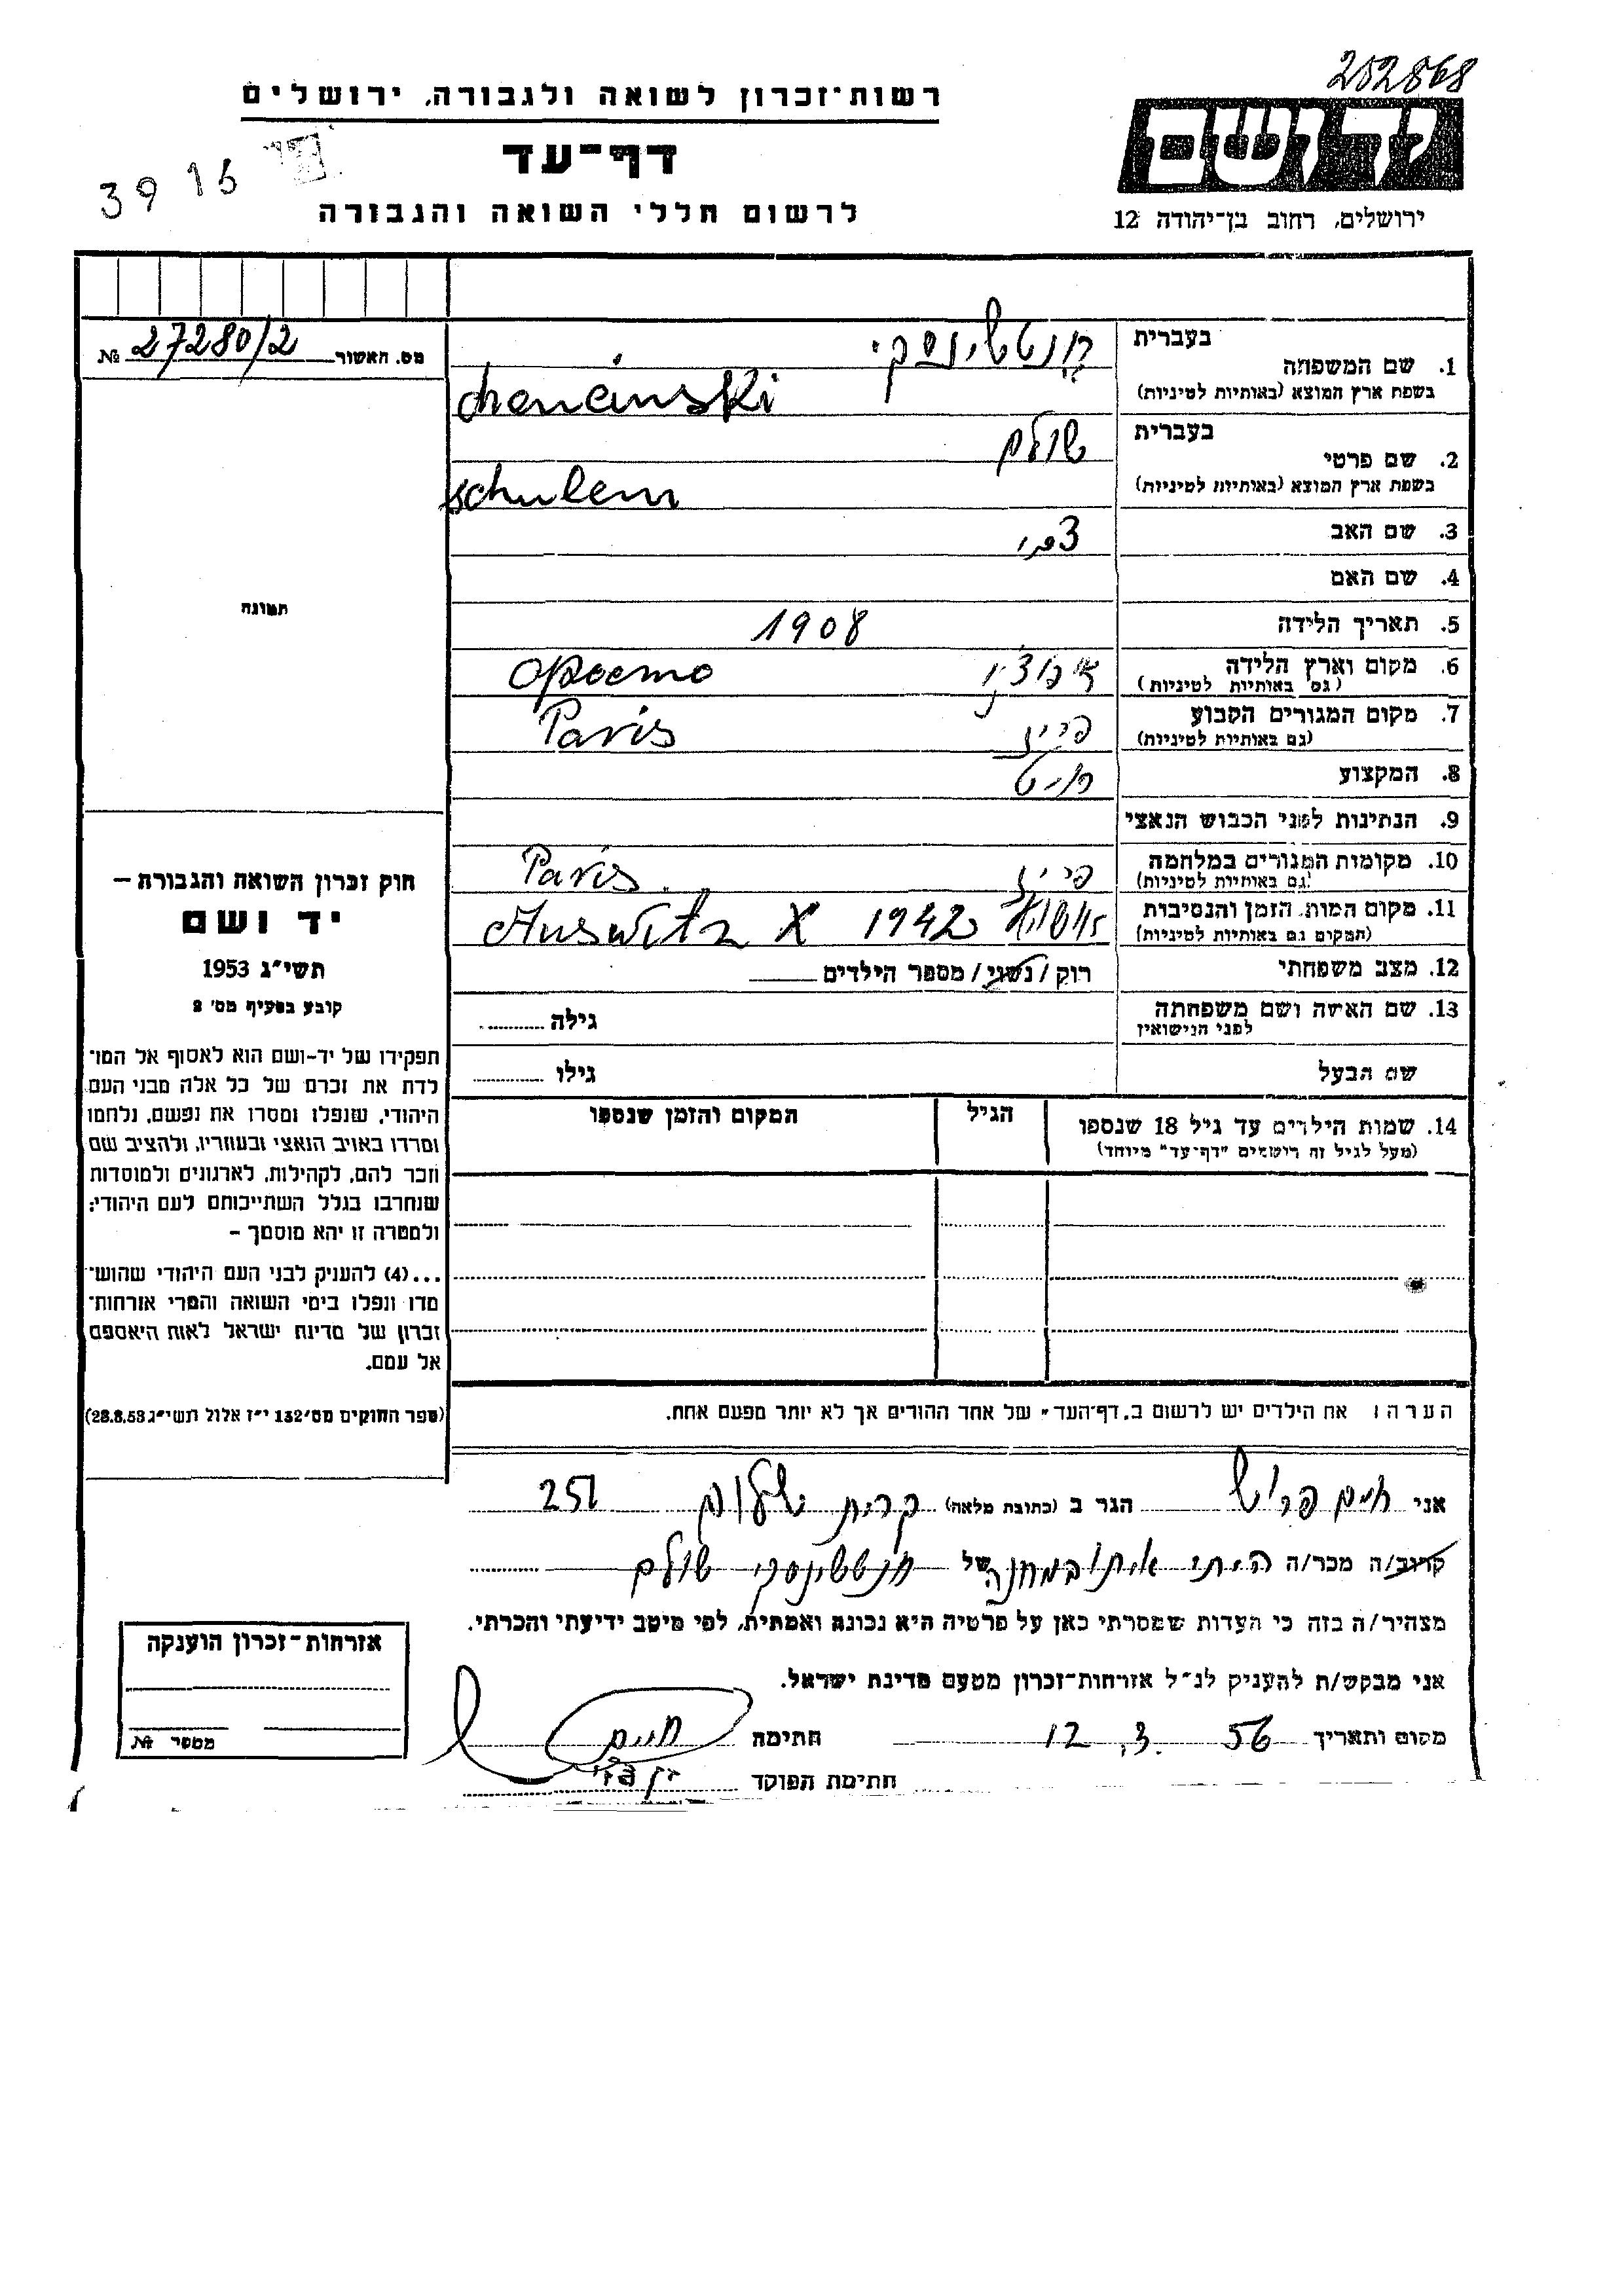 202868
רשות־זכרון לשואה ולגבורה, ירושלים
יד ושם
דף־עד
39 15
לרשום חללי השואה והגבורה
ירושלים, רחוב בן־יהודה 12
מס. האשור 27280/2 №
בעברית
1. שם המשפחה
חנטשינסקי
בשפת ארץ המוצא (באותיות לטיניות)
chencinski
בעברית
2. שם פרטי
שולם
בשפת ארץ המוצא (באותיות לטיניות)
schulem
3. שם האב
4. שם האם
תמונה
5. תאריך הלידה
1908
6. מקום וארץ הלידה
(גם באותיות לטיניות)
7. מקום המגורים הקבוע
(גם באותיות לטיניות)
פריז Paris
8. המקצוע
חייט
9. הנתינות לפני הכבוש הנאצי
10. מקומות המגורים במלחמה
(גם באותיות לטיניות)
פריז Paris
11. מקום המות, הזמן והנסיבות
(המקום גם באותיות לטיניות)
Auswitz X 1942
12. מצב משפחתי
רוק / נשוי / מספר הילדים
13. שם האשה ושם משפחתה
לפני הנישואין
גילה
שם הבעל
גילו
14. שמות הילדים עד גיל 18 שנספו
(מעל לגיל זה רושמים "דף־עד" מיוחד)
הגיל
המקום והזמן שנספו
חוק זכרון השואה והגבורה –
יד ושם
תשי״ג 1953
קובע בסעיף מס׳ 2
תפקידו של יד־ושם הוא לאסוף אל המו־
לדת את זכרם של כל אלה מבני העם
היהודי, שנפלו ומסרו את נפשם, נלחמו
ומרדו באויב הנאצי ובעוזריו, ולהציב שם
וזכר להם, לקהילות, לארגונים ולמוסדות
שנחרבו בגלל השתייכותם לעם היהודי;
ולמטרה זו יהא מוסמך –
...(4) להעניק לבני העם היהודי שהוש־
מדו ונפלו בימי השואה והמרי אזרחות־
זכרון של מדינת ישראל לאות היאספם
אל עמם.
(ספר החוקים מס׳ 132 י״ז אלול תשי״ג 28.8.53)
הערה: את הילדים יש לרשום ב„דף־העד״ של אחד ההורים אך לא יותר מפעם אחת.
אני חיים הגר ב (כתובת מלאה) קרית שלום 251
קרוב/ה מכר/ה הייתי איתו במחנה של חנטשינסקי שולם
מצהיר/ה בזה כי העדות שמסרתי כאן על פרטיה היא נכונה ואמתית, לפי מיטב ידיעתי והכרתי.
אני מבקש/ת להעניק לנ״ל אזרחות־זכרון מטעם מדינת ישראל.
מקום ותאריך 12 .3. 56 חתימה חיים
חתימת הפוקד
אזרחות־זכרון הוענקה
מספר №